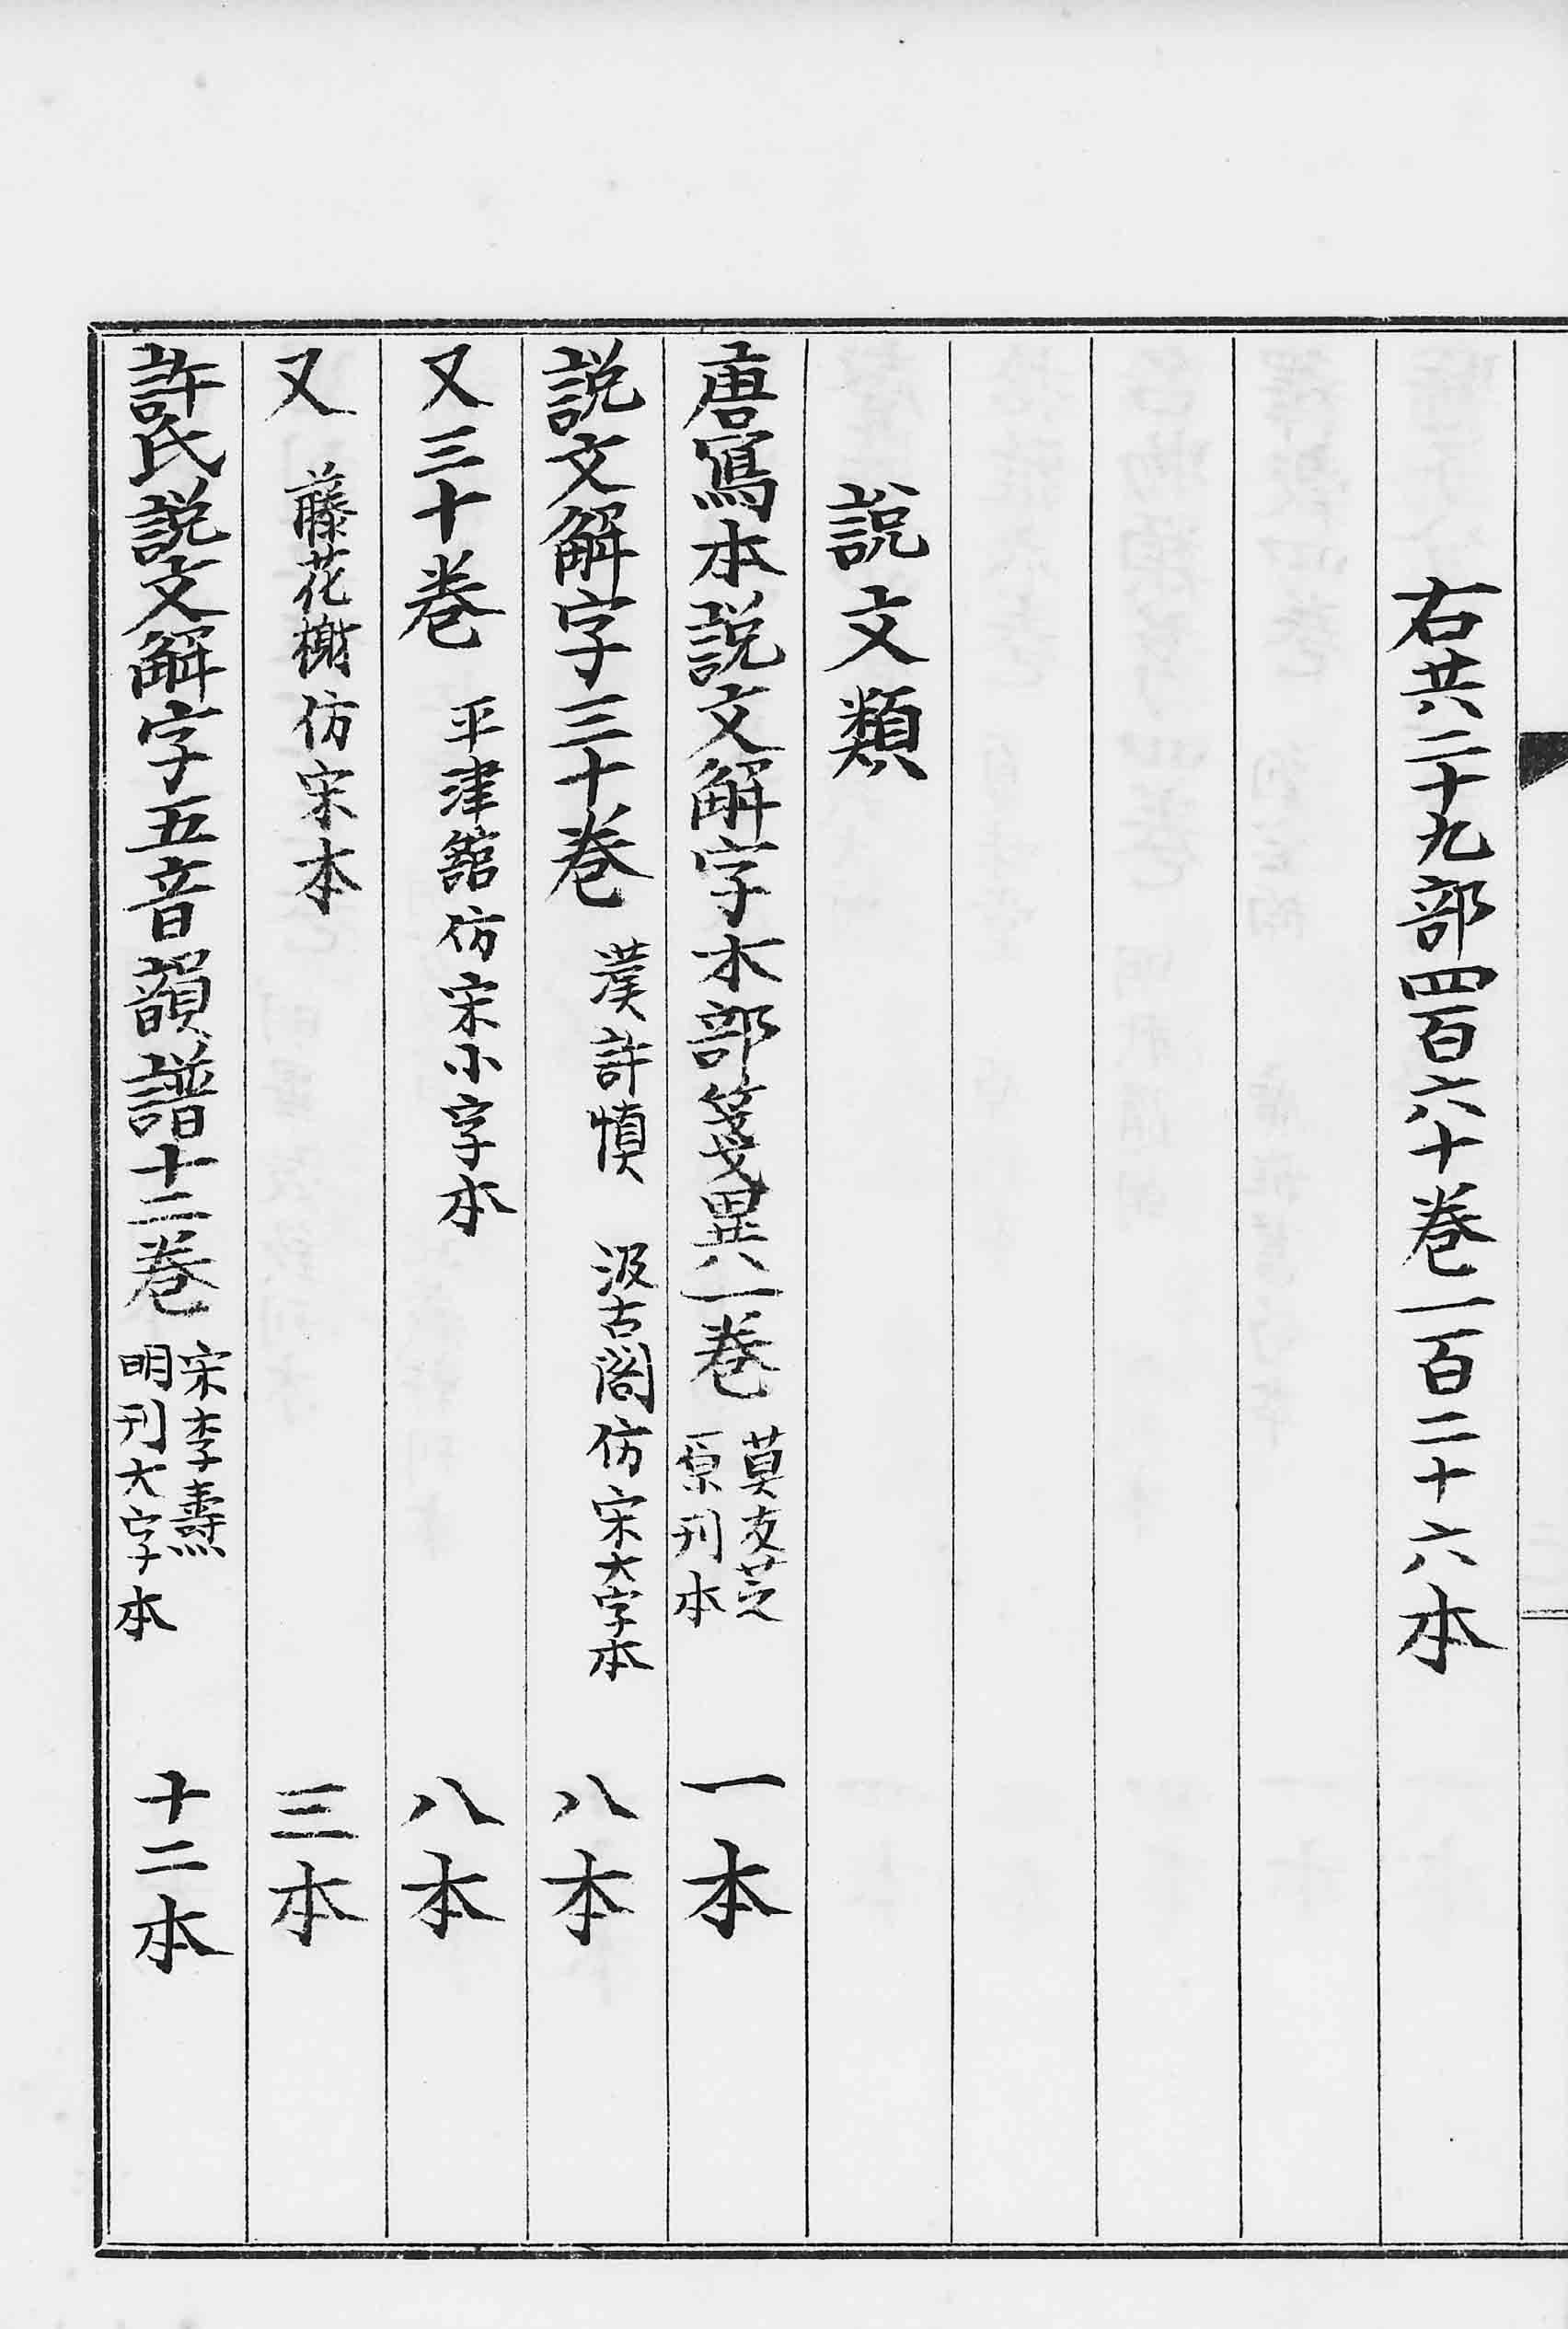 右共二十九部四百六十卷一百二十六本
說文類
唐寫本說文解字木部箋異一卷 莫友芝 原刊本 一本
說文解字三十卷 漢許慎 汲古閣仿宋大字本 八本
又三十卷 平津館仿宋小字本 八本
又 藤花榭仿宋本 三本
許氏說文解字五音韻譜十二卷 宋李燾 明刊大字本 十二本